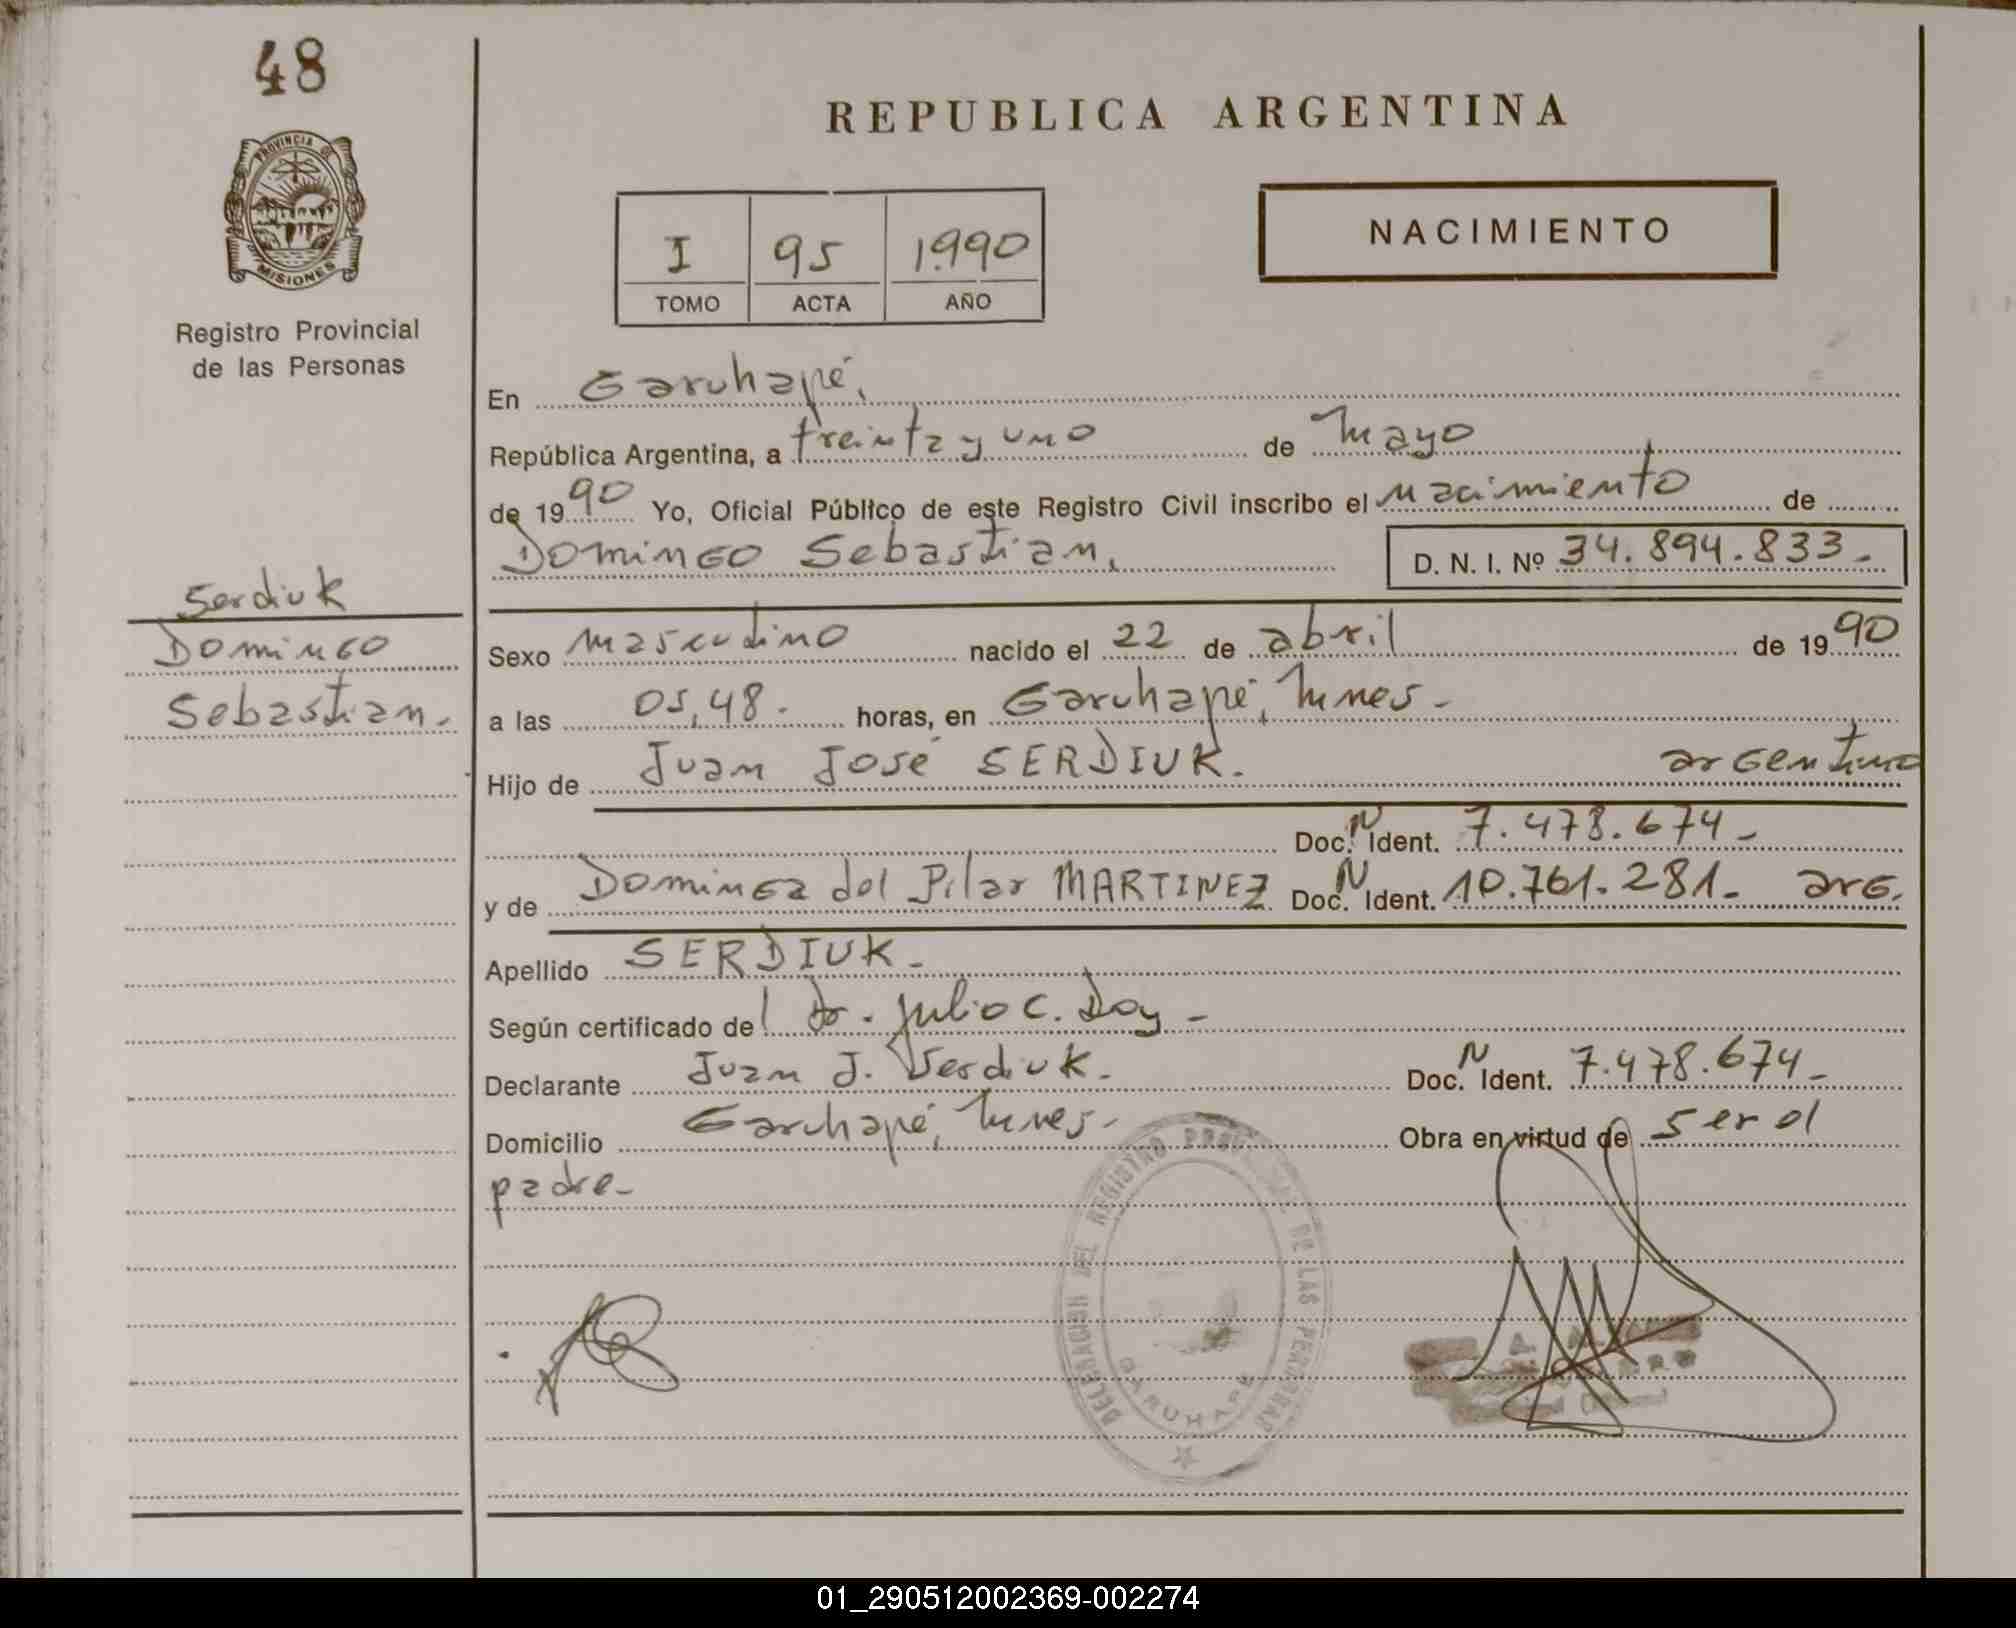 48
REPUBLICA ARGENTINA
PROVINCIA DE
MISIONES
Registro Provincial
de las Personas
I 95 1.990
TOMO ACTA AÑO
NACIMIENTO
En Garuhapé,
República Argentina, a treinta y uno de mayo
de 1990 Yo, Oficial Público de este Registro Civil inscribo el nacimiento de
Domingo Sebastian, D. N. I. Nº 34.894.833.-
Serdiuk
Domingo
Sebastian.
Sexo masculino nacido el 22 de abril de 1990
a las 05,48. horas, en Garuhapé, Mnes.-
Hijo de Juan José SERDIUK. argentino
Doc. N Ident. 7.478.674-
y de Dominga del Pilar MARTINEZ Doc. N Ident. 10.761.281.- arg.
Apellido SERDIUK.-
Según certificado del Dr. Julio C. Doy-
Declarante Juan J. Serdiuk. Doc. N Ident. 7.478.674-
Domicilio Garuhapé, Mnes.- Obra en virtud de ser el
padre-
DELEGACION DEL REGISTRO PROV. DE LAS PERSONAS
GARUHAPE
01_290512002369-002274